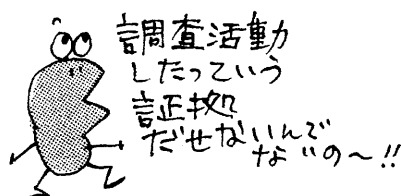 調査活動
したっていう
証拠
だせないんで
ないの～!!